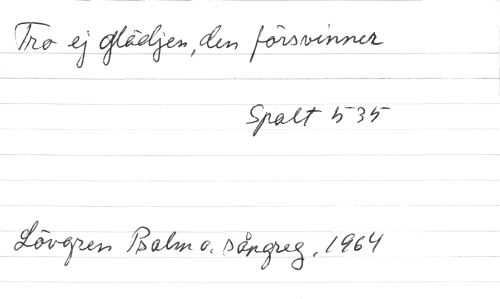 Tro ej glädjen, den försvinner
Spalt 535
Lövgren Psalm o. sångreg. 1964